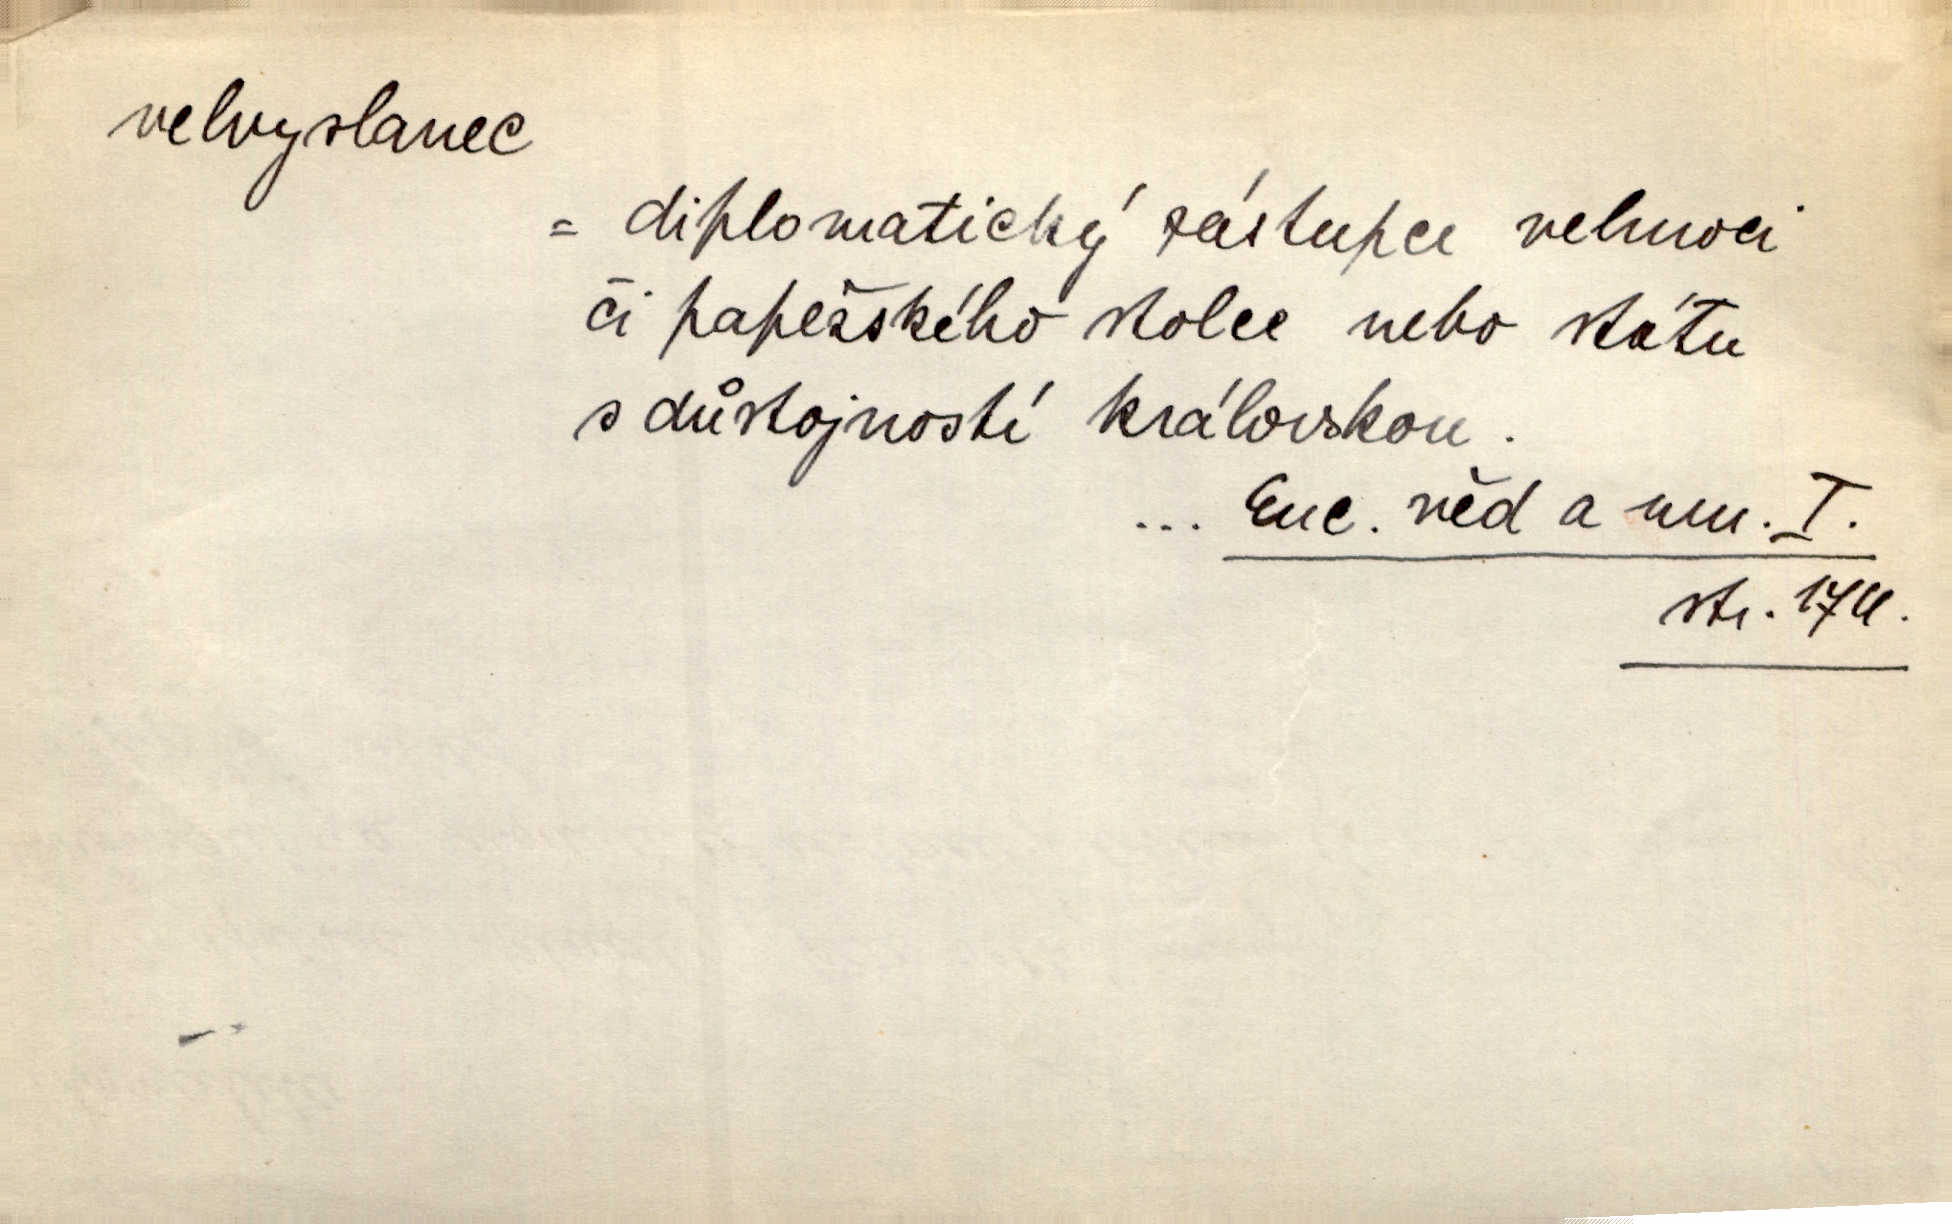 velvyslanec
= diplomatický zástupce velmoci
či papežského stolce nebo státu
s důstojností královskou.
... Enc. věd a um. I.
str.